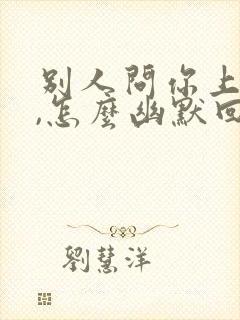 別人問你上
,怎麼幽默回
劉慧洋